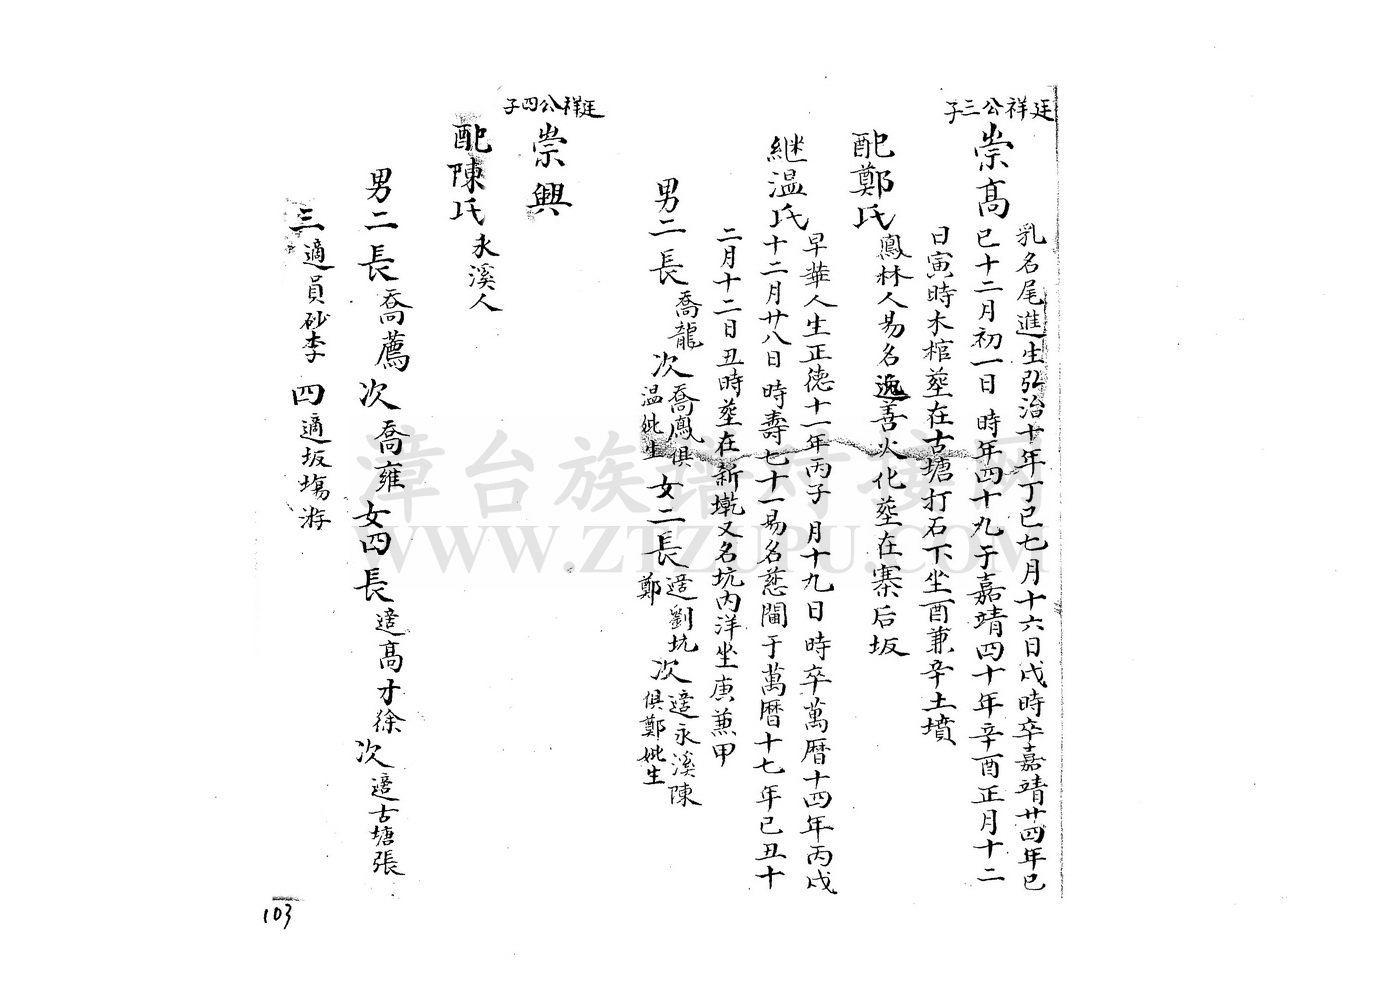 廷祥公三子
崇高
乳名尾進生弘治十年丁巳七月十六日戌時卒嘉靖廿四年已
巳十二月初一日 時年四十九于嘉靖四十年辛酉正月十二
日寅時木棺塟在古塘打石下坐酉兼辛土墳
配鄭氏 鳳林人易名逸善火化塟在寨后坂
継温氏
早華人生正德十一年丙子 月十九日 時卒萬曆十四年丙戌
十二月廿八日 時壽七十一易名慈閫于萬曆十七年已丑十
二月十二日丑時塟在新墘又名坑內洋坐庚兼甲
男二 長 喬龍 次 喬鳳俱温妣生 女二 長 適劉坑鄭 次 適永溪陳俱鄭妣生
廷祥公四子
崇興
配陳氏 永溪人
男二 長 喬薦 次 喬雍 女四 長 適高才徐 次 適古塘張
三 適員砂李 四 適坂塲游
103
漳台族谱对接网
WWW.ZTZUPU.COM